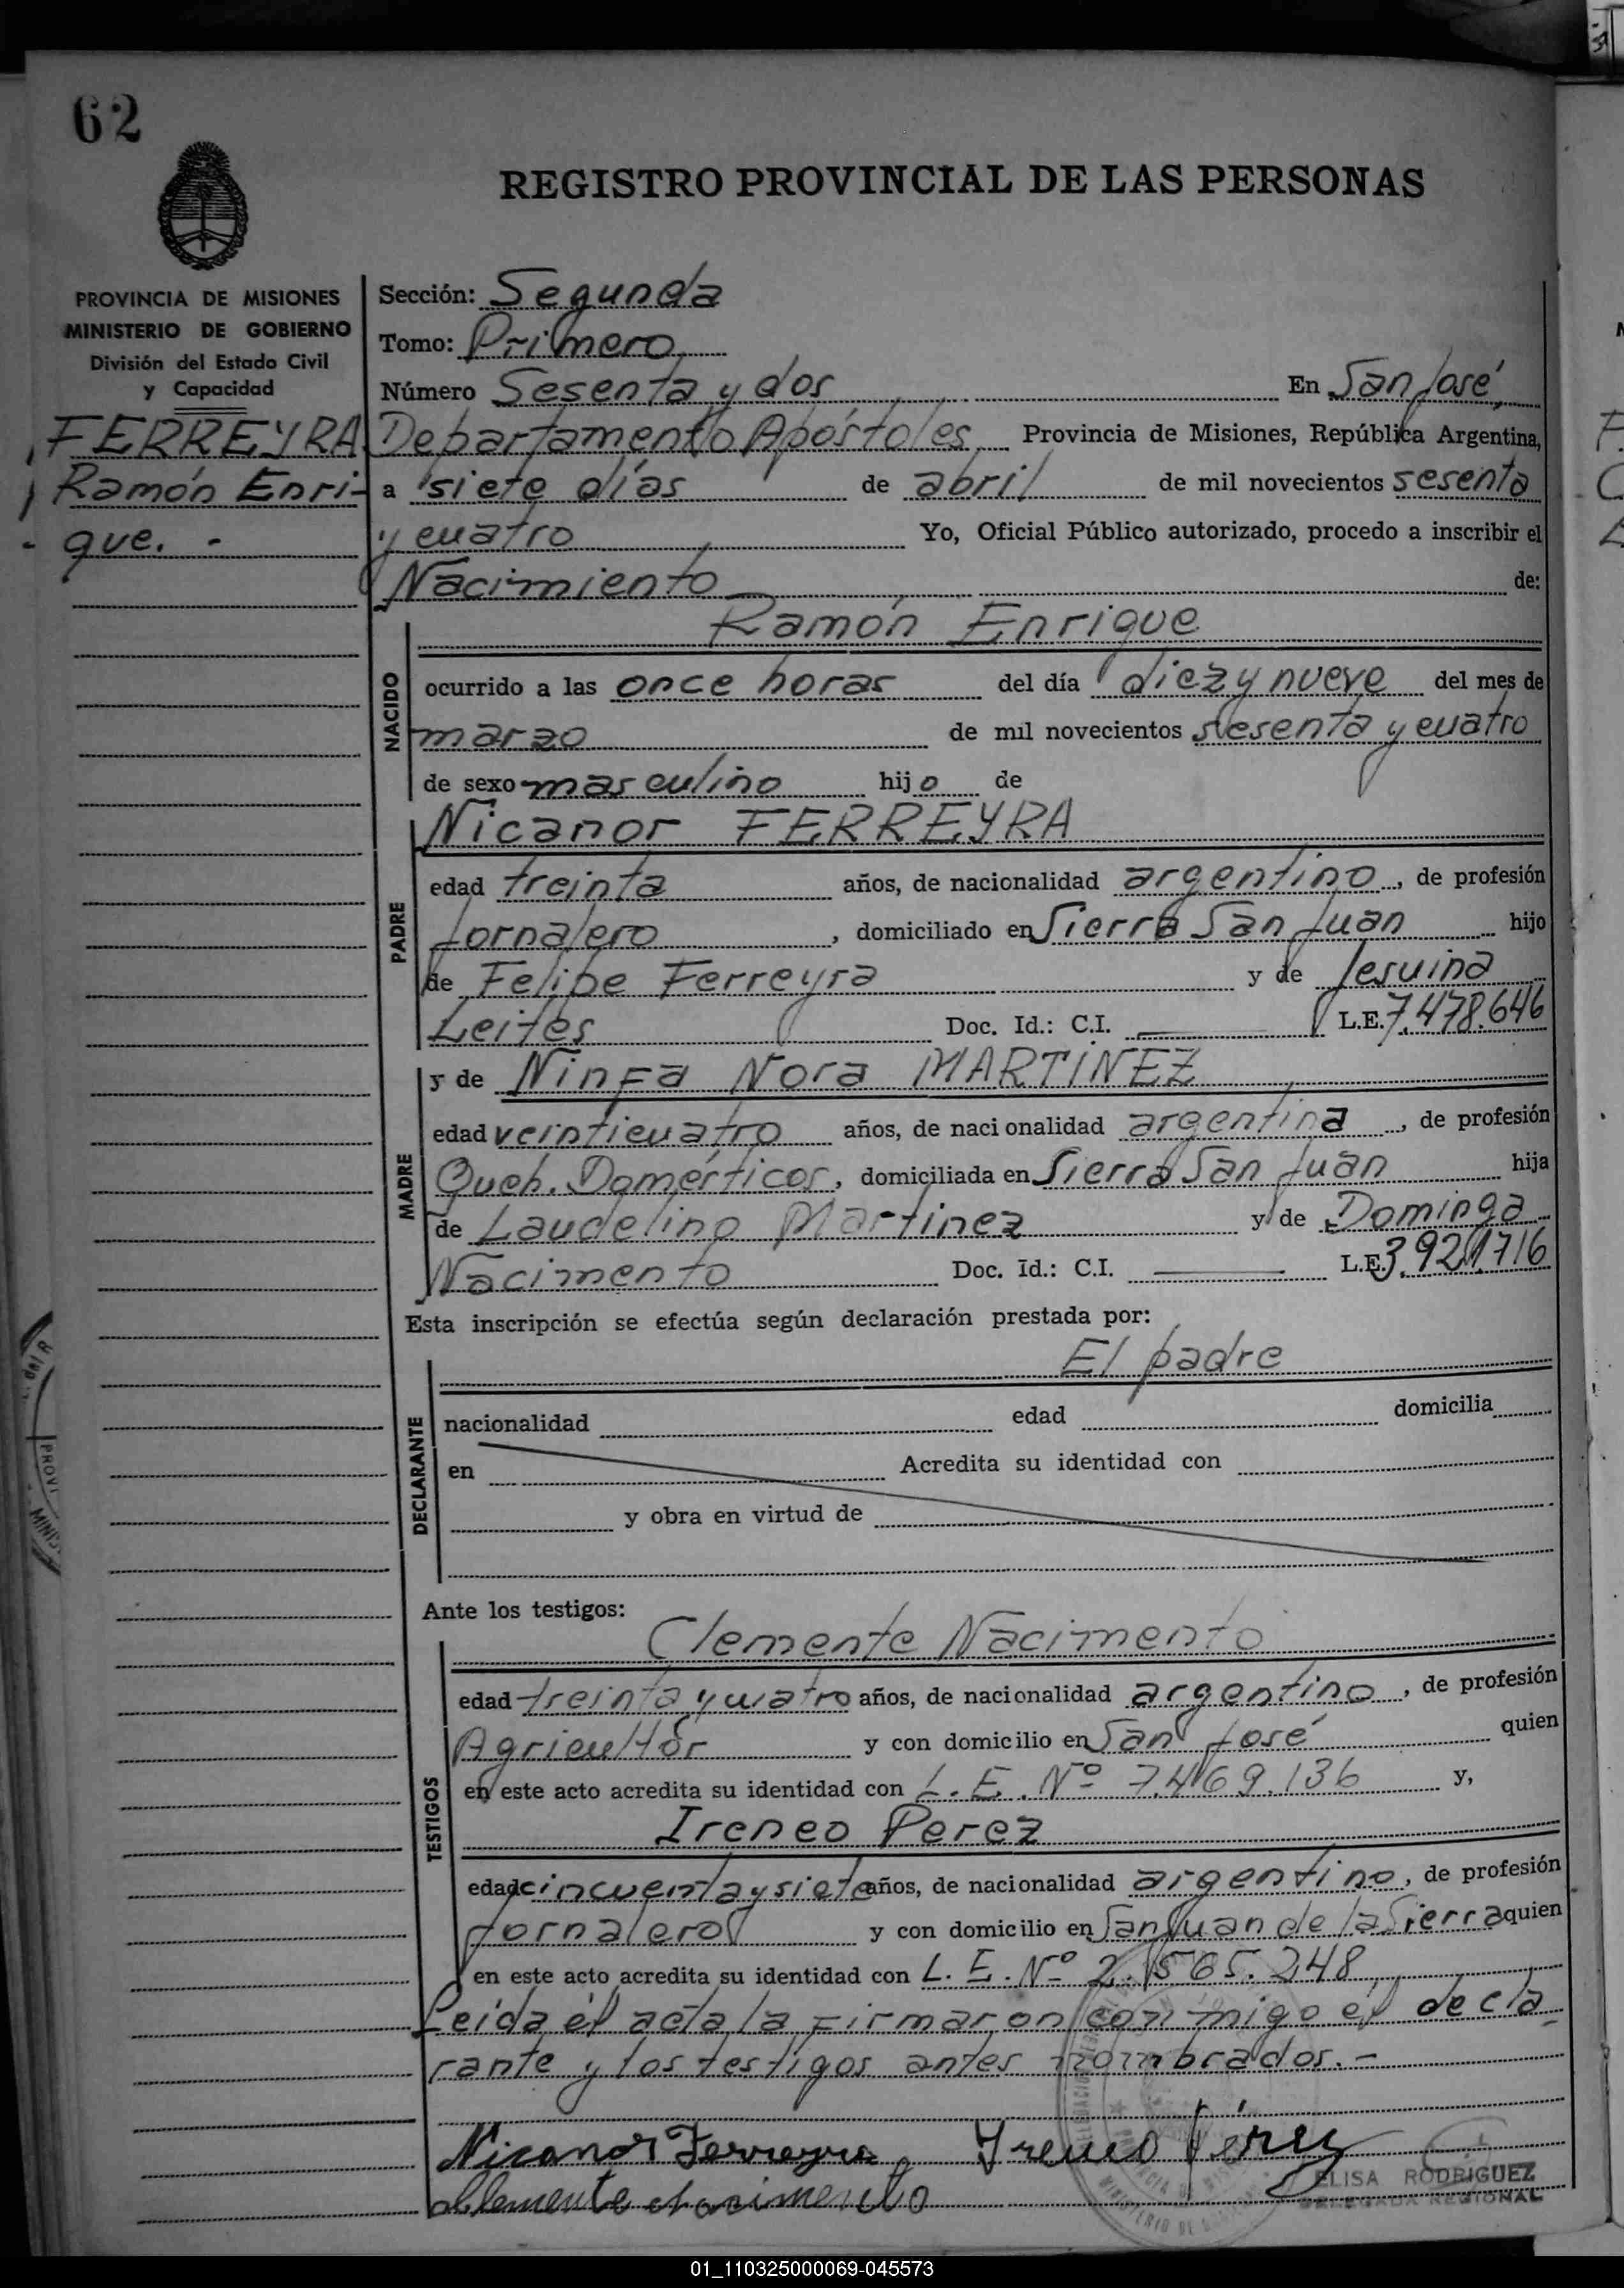 62
REGISTRO PROVINCIAL DE LAS PERSONAS
PROVINCIA DE MISIONES
MINISTERIO DE GOBIERNO
División del Estado Civil
y Capacidad
FERREYRA
Ramón Enri-
que. -
Sección: Segunda
Tomo: Primero
Número Sesenta y dos En San José,
Departamento Apóstoles Provincia de Misiones, República Argentina,
a siete días de abril de mil novecientos sesenta
y cuatro Yo, Oficial Público autorizado, procedo a inscribir el
Nacimiento de:
Ramón Enrique
NACIDO
ocurrido a las once horas del día diez y nueve del mes de
marzo de mil novecientos sesenta y cuatro
de sexo masculino hijo de
Nicanor FERREYRA
PADRE
edad treinta años, de nacionalidad argentino, de profesión
Jornalero, domiciliado en Sierra San Juan hijo
de Felipe Ferreyra y de Jesuina
Leites Doc. Id.: C.I. L.E. 7.478.646
y de Ninfa Nora MARTINEZ
MADRE
edad veinticuatro años, de nacionalidad argentina, de profesión
Queh. Domésticos, domiciliada en Sierra San Juan hija
de Laudelino Martinez y de Dominga
Nacimento Doc. Id.: C.I. L.E. 3.921.716
Esta inscripción se efectúa según declaración prestada por:
El padre
DECLARANTE
nacionalidad edad domicilia
en Acredita su identidad con
y obra en virtud de
Ante los testigos:
Clemente Nacimento
TESTIGOS
edad treinta y cuatro años, de nacionalidad argentino, de profesión
Agricultor y con domicilio en San José quien
en este acto acredita su identidad con L. E. Nº 7.469.136 y,
Ireneo Perez
edad cincuenta y siete años, de nacionalidad argentino, de profesión
Jornalero y con domicilio en San Juan de la Sierra quien
en este acto acredita su identidad con L. E. Nº 2.565.248
Leida el acta, la firmaron conmigo el decla-
rante y los testigos antes nombrados. -
Nicanor Ferreyra Ireneo Pérez
Clemente Nacimento
ELISA RODRIGUEZ
DELEGADA REGIONAL
01_110325000069-045573